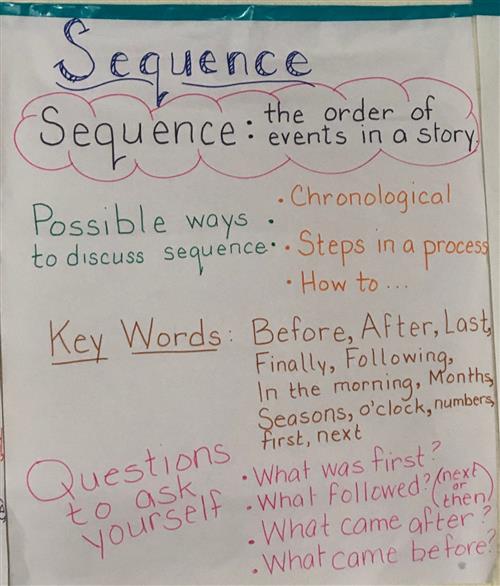 Sequence
Sequence: the order of
events in a story
Possible ways
to discuss sequence:
• Chronological
• Steps in a process
• How to ...
Key Words: Before, After, Last,
Finally, Following,
In the morning, Months,
Seasons, o'clock, numbers,
first, next
Questions
to ask
yourself
• What was first?
• What followed? (next or then)
• What came after?
• What came before?